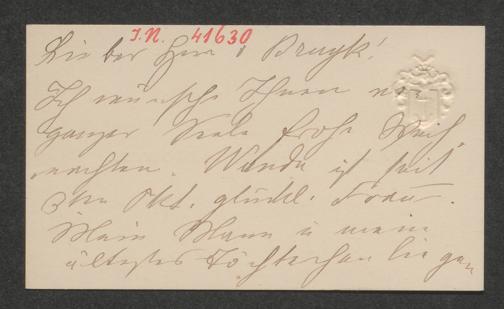 I.N. 41630
Lieber Herr v Bruyk!
Ich wünsche Ihnen von
ganzer Seele frohe Weih,
nachten. Wanda ist seit
3ten Okt. glückl. Frau.
Mein Mann u mein
ältestes Töchterchen liegen